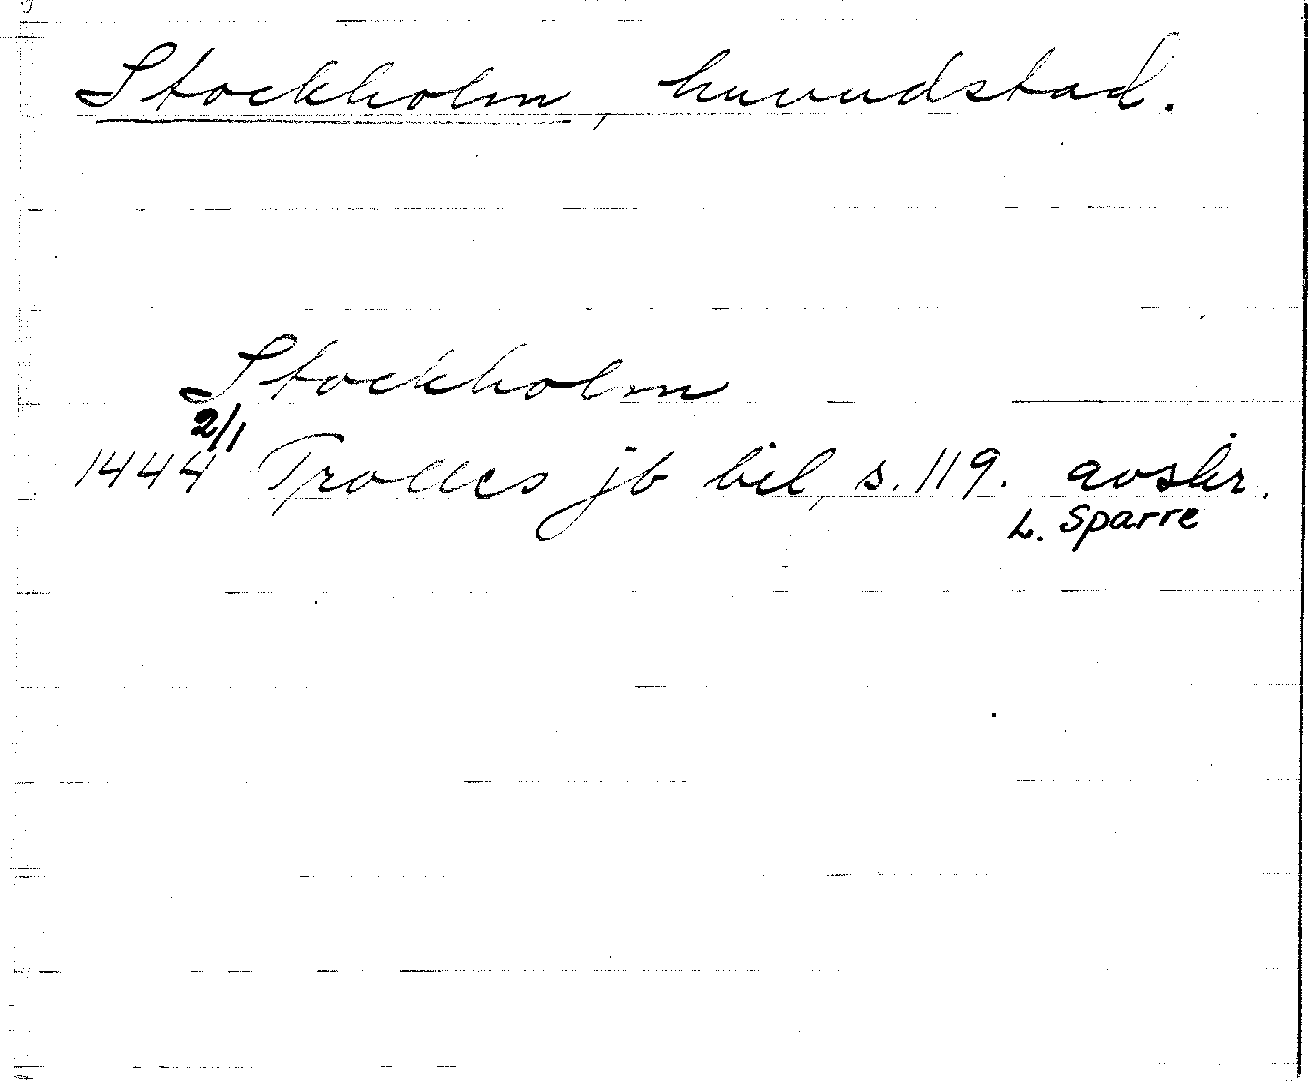 Stockholm, huvudstad.
Stockholm
2/1
1444 Trolles jb bil, s. 119. avskr.
L. Sparre